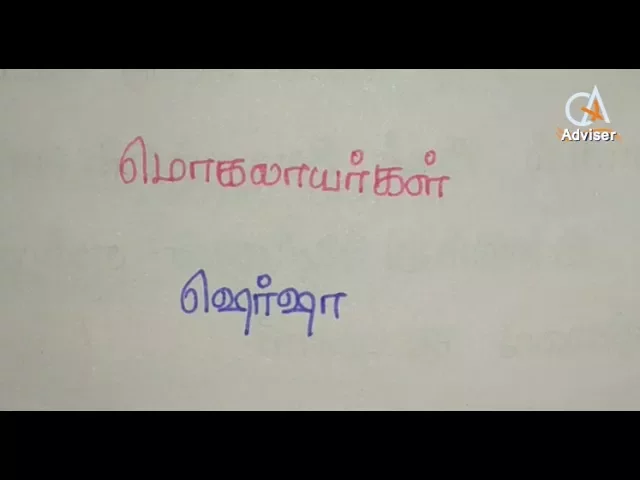 CA
Adviser
மொகலாயர்கள்
ஷெர்ஷா